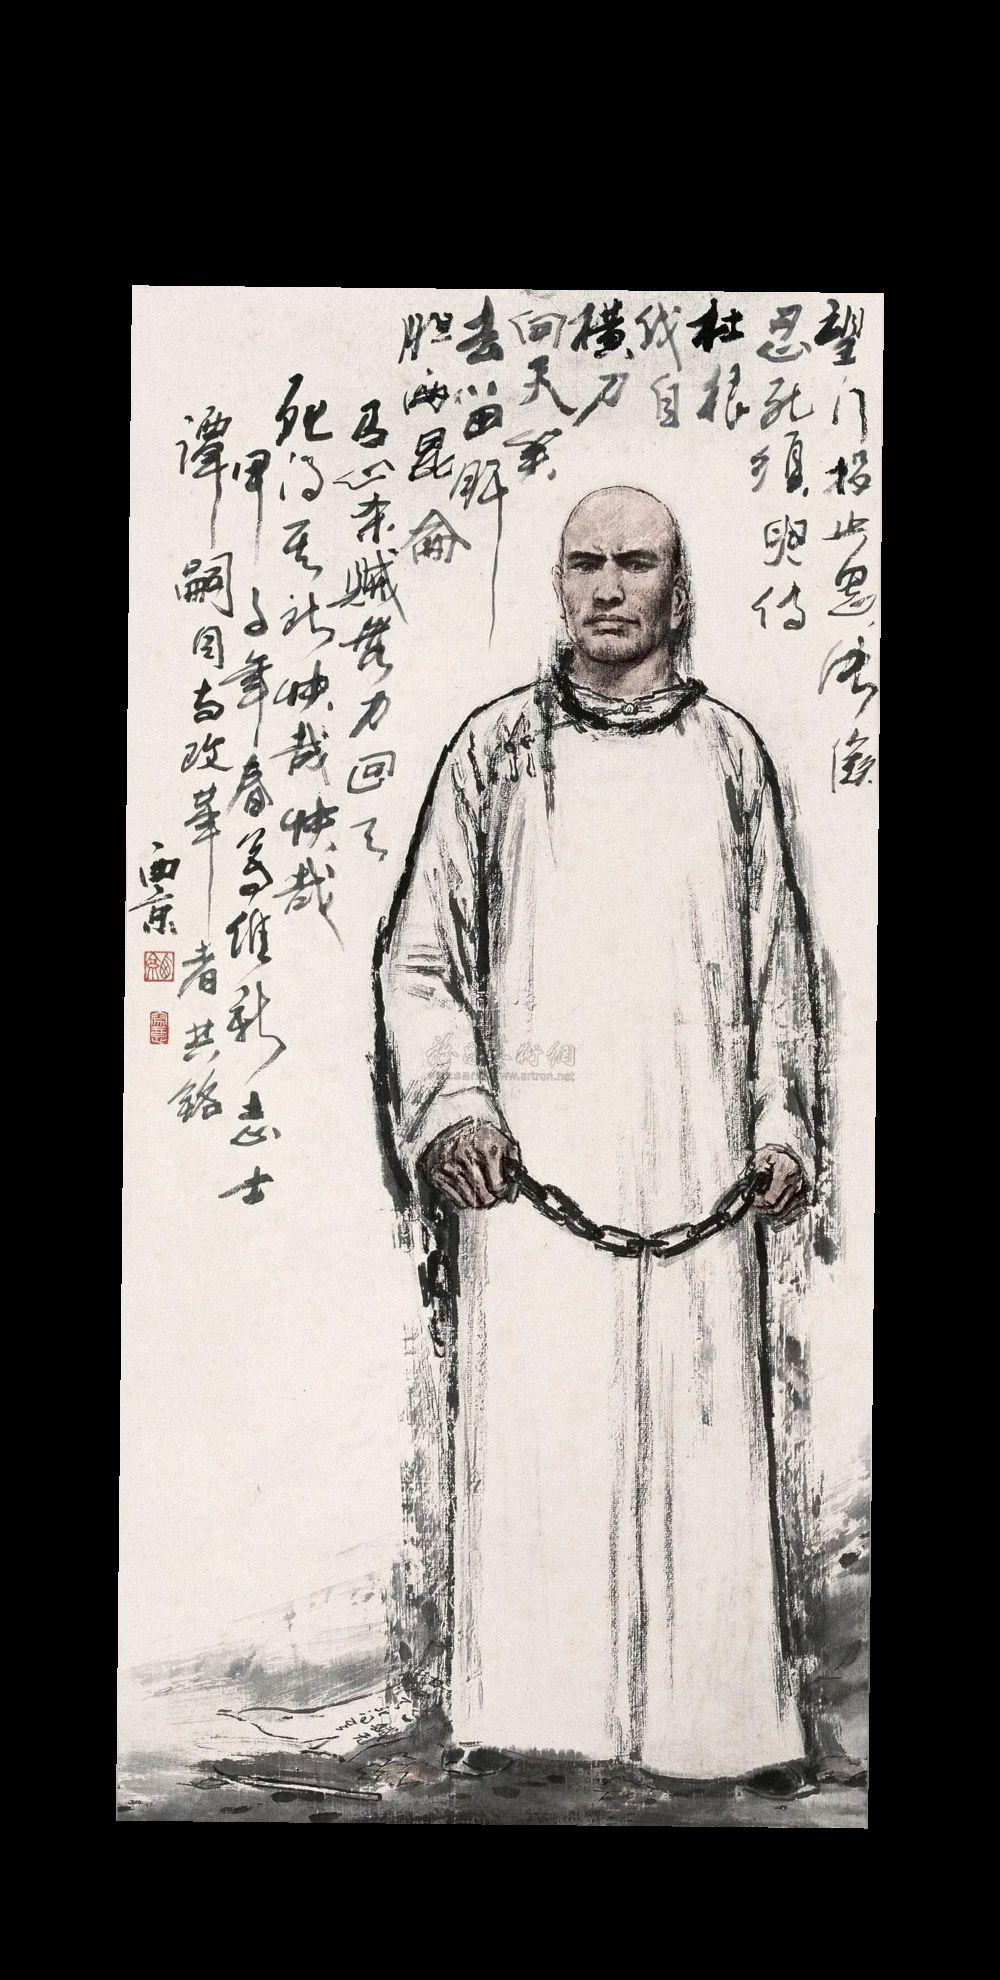 望门投止思张儉
忍死須臾待
杜根
我自
横刀
向天笑
去留肝
胆两昆侖
有心杀賊無力回天
死得其所快哉快哉
甲子年春写维新志士
譚嗣同与改革者共銘
西京
www.artron.net